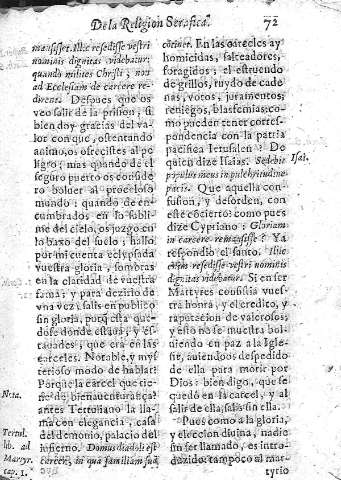 De la Religion Serafica. 72
mansisset. Illic resedisse vestri
nominis dignitas videbatur;
quando milites Christi, non
ad Ecclesiam de carcere re-
dirent. Despues que os
veo salir de la prision, si
bien doy gracias del va-
lor con que, ostentando
animo, os ofrecistes al pe-
ligro; mas quando de el
seguro puerto os conside
ro boluer al proceloso
mundo: quando de en-
cumbrados en lo subli-
me del cielo, os juzgo en
lo baxo del suelo; hallo
por mi cuenta eclypsada
vuestra gloria, sombras
en la claridad de vuestra
fama; y para dezirlo de
vna vez, salis en publico
sin gloria, porq̃ esta que-
dose donde estaua, y es-
tauades, que era en las
carceles. Notable, y mys
terioso modo de hablar!
Porque la carcel que tie-
ne de bienauenturança?
antes Tertoliano la lla-
ma con elegancia, casa
del demonio, palacio del
infierno. Domus diaboli est
carcer, in qua familiam suã
Nota.
Tertul.
lib. ad
Martyr.
cap. 1.
cõtinet. En las carceles ay
homicidas, salteadores,
foragidos; el estruendo
de grillos, ruydo de cade
nas, votos, juramentos;
reniegos, blasfemias: co-
mo pueden tener corres-
pondencia con la patria
pacifica Ierusalen? De
quien dize Isaias. Sedebit
populus meus in pulchritudine
pacis. Que aquella con-
fusion, y desorden, con
este cõcierto: como pues
dize Cypriano; Gloriam
in carcere remansisse? Ya
respondio el santo. Illic
enim resedisse vestri nominis
dignitas videbatur. Si en ser
Martyres consistia vues-
tra honra, y el credito, y
raputacion de valerosos;
y esto no se muestra bol-
uiendo en paz a la Igle-
sia, auiendoos despedido
de ella para morir por
Dios: bien digo, que se
quedò en la carcel, y al
salir de ella, salis sin ella.
Pues como a la gloria,
y eleccion diuina, nadie
sin ser llamado, es intro-
duzido: tampoco al mar-
tyrio
Isai.